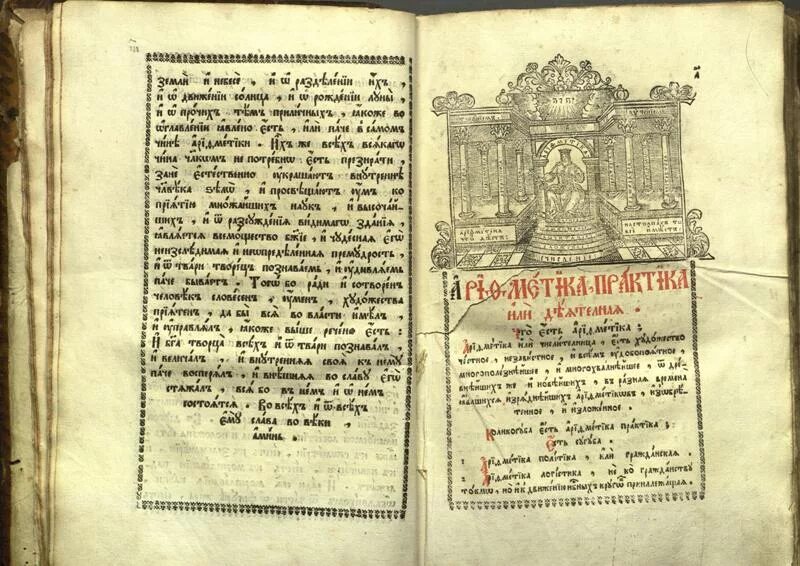 землѝ и҆ небесѐ , и҆ ѡ҆ раздѣленїи и҆́хъ ,
и҆ ѡ҆ движенїи со́лнца , и҆ ѡ҆ рожде́нїи луны̀ ,
и҆ ѡ҆ про́чихъ тѣ́мъ прили́чныхъ , ꙗ҆́коже во
ѡ҆главле́нїи ꙗ҆влено є҆́сть , и҆лѝ па́че в̾ само́мъ
чи́нѣ а҆рїѳме́тїки . И҆́хъ же всѣ́хъ всѧ́кагѡ
чи́на чл҃кѡмъ не потре́бнѡ є҆́сть презира́ти ,
занѐ є҆сте́ственно ѹ҆краша́ютъ вну́треннѣ
чл҃вѣ́ка ѕѣлѡ̀ , и҆ просвѣща́ютъ ѹ҆́мъ ко
прїѧ́тїю множа́йшихъ нау́къ , и҆ высоча́й-
шихъ , и҆ ѿ разсужде́нїѧ ви́димагѡ зда́нїѧ ,
ꙗ҆влѧ́етсѧ всемо́щество бж҃їе , и҆ чуде́снаѧ є҆гѡ̀
неизслѣди́маѧ и҆ неѡпредѣле́ннаѧ прему́дрость ,
и҆ ѿ тва́ри творе́цъ познава́емь , и҆ ѹ҆дивлѧ́емь
па́че быва́етъ . Тогѡ́ бо ра́ди и҆ сотворе́нъ
человѣ́къ слове́сенъ , ѹ҆́менъ , худо́жества
прїѧ́тенъ , да бы всѧ̀ во вла́сти и҆мѣ́лъ ,
и҆ ѹ҆правлѧ́лъ , ꙗ҆́коже вы́ше рече́но є҆́сть :
И҆ бг҃а творца̀ всѣ́хъ и҆ ѿ тва́ри познава́лъ ,
и҆ велича́лъ , и҆ вну́треннѧѧ своѧ̀ к̾ нему̀
па́че восперѧ́лъ , и҆ внѣ́шнѧѧ во сла́ву є҆гѡ̀
стѧжа́лъ , всѧ̀ бо в̾ не́мъ и҆ ѡ҆ не́мъ
состоѧ́тсѧ . Во всѣ́хъ и҆ ѿ всѣ́хъ
є҆му̀ сла́ва во вѣ́ки ,
а҆ми́нь .
а҃
А҆рїѳме́тїка
что̀ дѣ́етъ :
А҆РІѲМЕ́ТЇКА ПРА́КТЇКА
И҆Лѝ ДѢ́ЯТЕЛНАЯ .
Что̀ є҆́сть а҆рїѳме́тїка :
А҆рїѳме́тїка и҆лѝ числи́телница , є҆́сть худо́жество
че́стное , незави́стное , и҆ всѣ́мъ ѹ҆добопонѧ́тное ,
многополе́знѣйшее , и҆ многохва́лнѣйшее , ѿ дре́-
внѣйшихъ же и҆ новѣ́йшихъ , в̾ ра́знаѧ времена̀
ꙗ҆ви́вшихсѧ и҆зрѧ́днѣйшихъ а҆рїѳме́тїкѡвъ , и҆з̾ѡбрѣ́-
тенное , и҆ и҆зложе́нное .
Коликогу́ба є҆́сть а҆рїѳме́тїка пра́ктїка :
Є҆́сть сугу́ба .
а҃ А҆рїѳме́тїка полі́тїка , и҆лѝ гражда́нскаѧ .
в҃ А҆рїѳме́тїка логі́стїка , не ко гражда́нству
то́кмѡ , но и҆ к̾ движе́нїю нб҃ныхъ кругѡ́въ принадлежа́щаѧ .